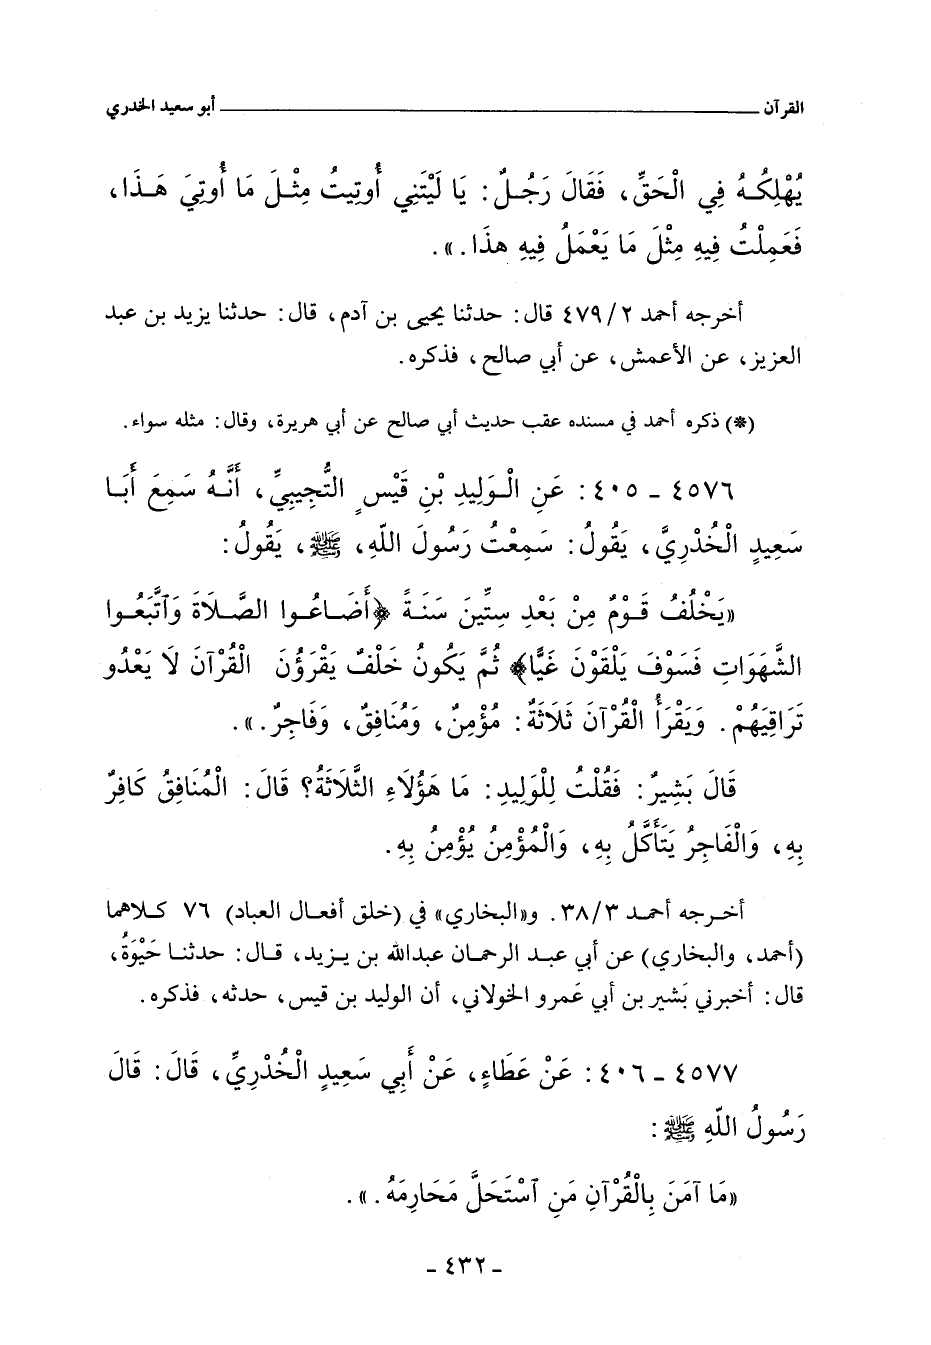 القرآن ـــــــــــــ أبو سعيد الخدري
يُهْلِكُـهُ فِي الْحَقِّ، فَقَالَ رَجُـلٌ: يَا لَيْتَنِي أُوتِيتُ مِثْـلَ مَا أُوتِيَ هَـذَا،
فَعَمِلْتُ فِيهِ مِثْلَ مَا يَعْمَلُ فِيهِ هذَا.».
أخرجه أحمد ٢/ ٤٧٩ قال: حدثنا يحيى بن آدم، قال: حدثنا يزيد بن عبد
العزيز، عن الأعمش، عن أبي صالح، فذكره.
(*) ذكره أحمد في مسنده عقب حديث أبي صالح عن أبي هريرة، وقال: مثله سواء.
٤٥٧٦ - ٤٠٥: عَنِ الْـوَلِيدِ بْنِ قَيْسٍ التُّجِيبِيِّ، أَنَّـهُ سَمِعَ أَبَـا
سَعِيدٍ الْخُدْرِيَّ، يَقُولُ: سَمِعْتُ رَسُولَ اللّهِ، ﷺ، يَقُولُ:
«يَخْلُفُ قَـوْمٌ مِنْ بَعْدِ سِتِّينَ سَنَـةً ﴿أَضَـاعُـوا الصَّـلَاةَ وَٱتَّبَعُـوا
الشَّهَوَاتِ فَسَوْفَ يَلْقَوْنَ غَيًّا﴾ ثُمَّ يَكُونُ خَلْفٌ يَقْرَؤُنَ الْقُرْآنَ لَا يَعْدُو
تَرَاقِيَهُمْ. وَيَقْرَأُ الْقُرْآنَ ثَلَاثَةٌ: مُؤْمِنٌ، وَمُنَافِقٌ، وَفَاجِرٌ.».
قَالَ بَشِيرٌ: فَقُلْتُ لِلْوَلِيدِ: مَا هَؤُلَاءِ الثَّلَاثَةُ؟ قَالَ: الْمُنَافِقُ كَافِرٌ
بِهِ، وَالْفَاجِرُ يَتَأَكَّلُ بِهِ، وَالْمُؤْمِنُ يُؤْمِنُ بِهِ.
أخـرجه أحمـد ٣/ ٣٨. و«البخاري» في (خلق أفعـال العباد) ٧٦ كـلاهما
(أحمد، والبخاري) عن أبي عبـد الرحمـان عبدالله بن يـزيد، قـال: حدثنـا حَيْوَةُ،
قال: أخبرني بَشير بن أبي عَمرو الخولاني، أن الوليد بن قيس، حدثه، فذكره.
٤٥٧٧ - ٤٠٦: عَنْ عَطَاءٍ، عَنْ أَبِي سَعِيدٍ الْخُدْرِيِّ، قَالَ: قَالَ
رَسُولُ اللّهِ ﷺ:
«مَا آمَنَ بِالْقُرْآنِ مَنِ ٱسْتَحَلَّ مَحَارِمَهُ.».
- ٤٣٢ -